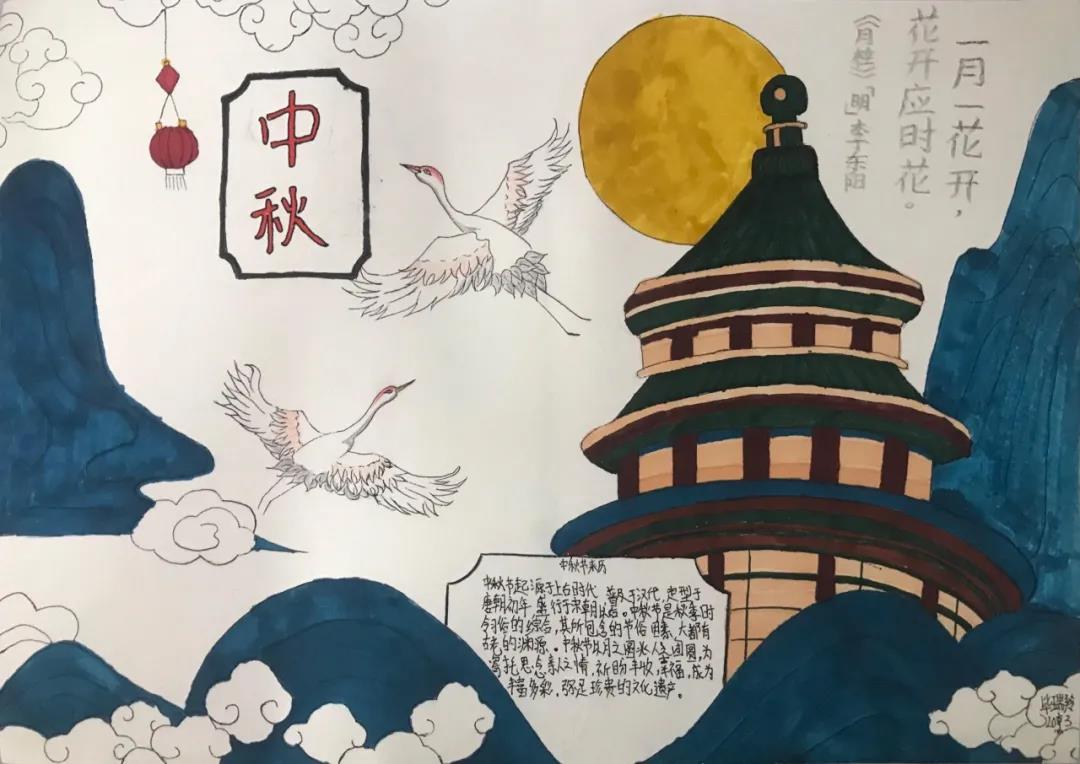 中秋
一月一花开，
花开应时花。
《月桂》「明」李东阳
中秋节来历
中秋节起源于上古时代，普及于汉代，定型于
唐朝初年，盛行于宋朝以后。中秋节是秋季时
令习俗的综合，其所包含的节俗因素，大都有
古老的渊源。中秋节以月之圆兆人之团圆，为
寄托思念亲人之情，祈盼丰收，幸福，成为
丰富多彩，弥足珍贵的文化遗产。